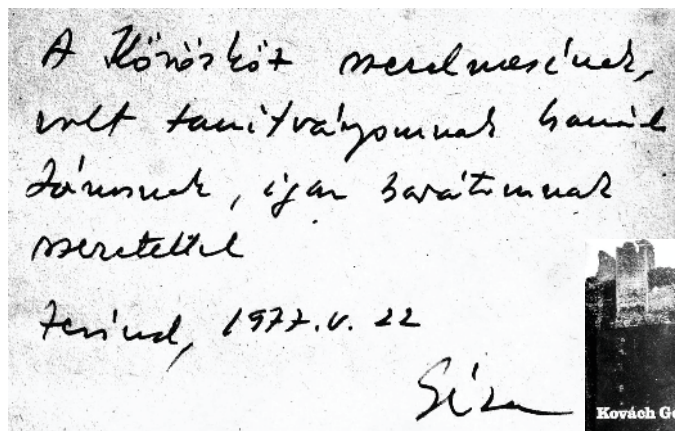 A Köröskőz szerelmesének,
volt tanítványomnak
Jánosnak, igaz barátomnak
szeretettel
1977. V. 22
Géza
Kovách Gé